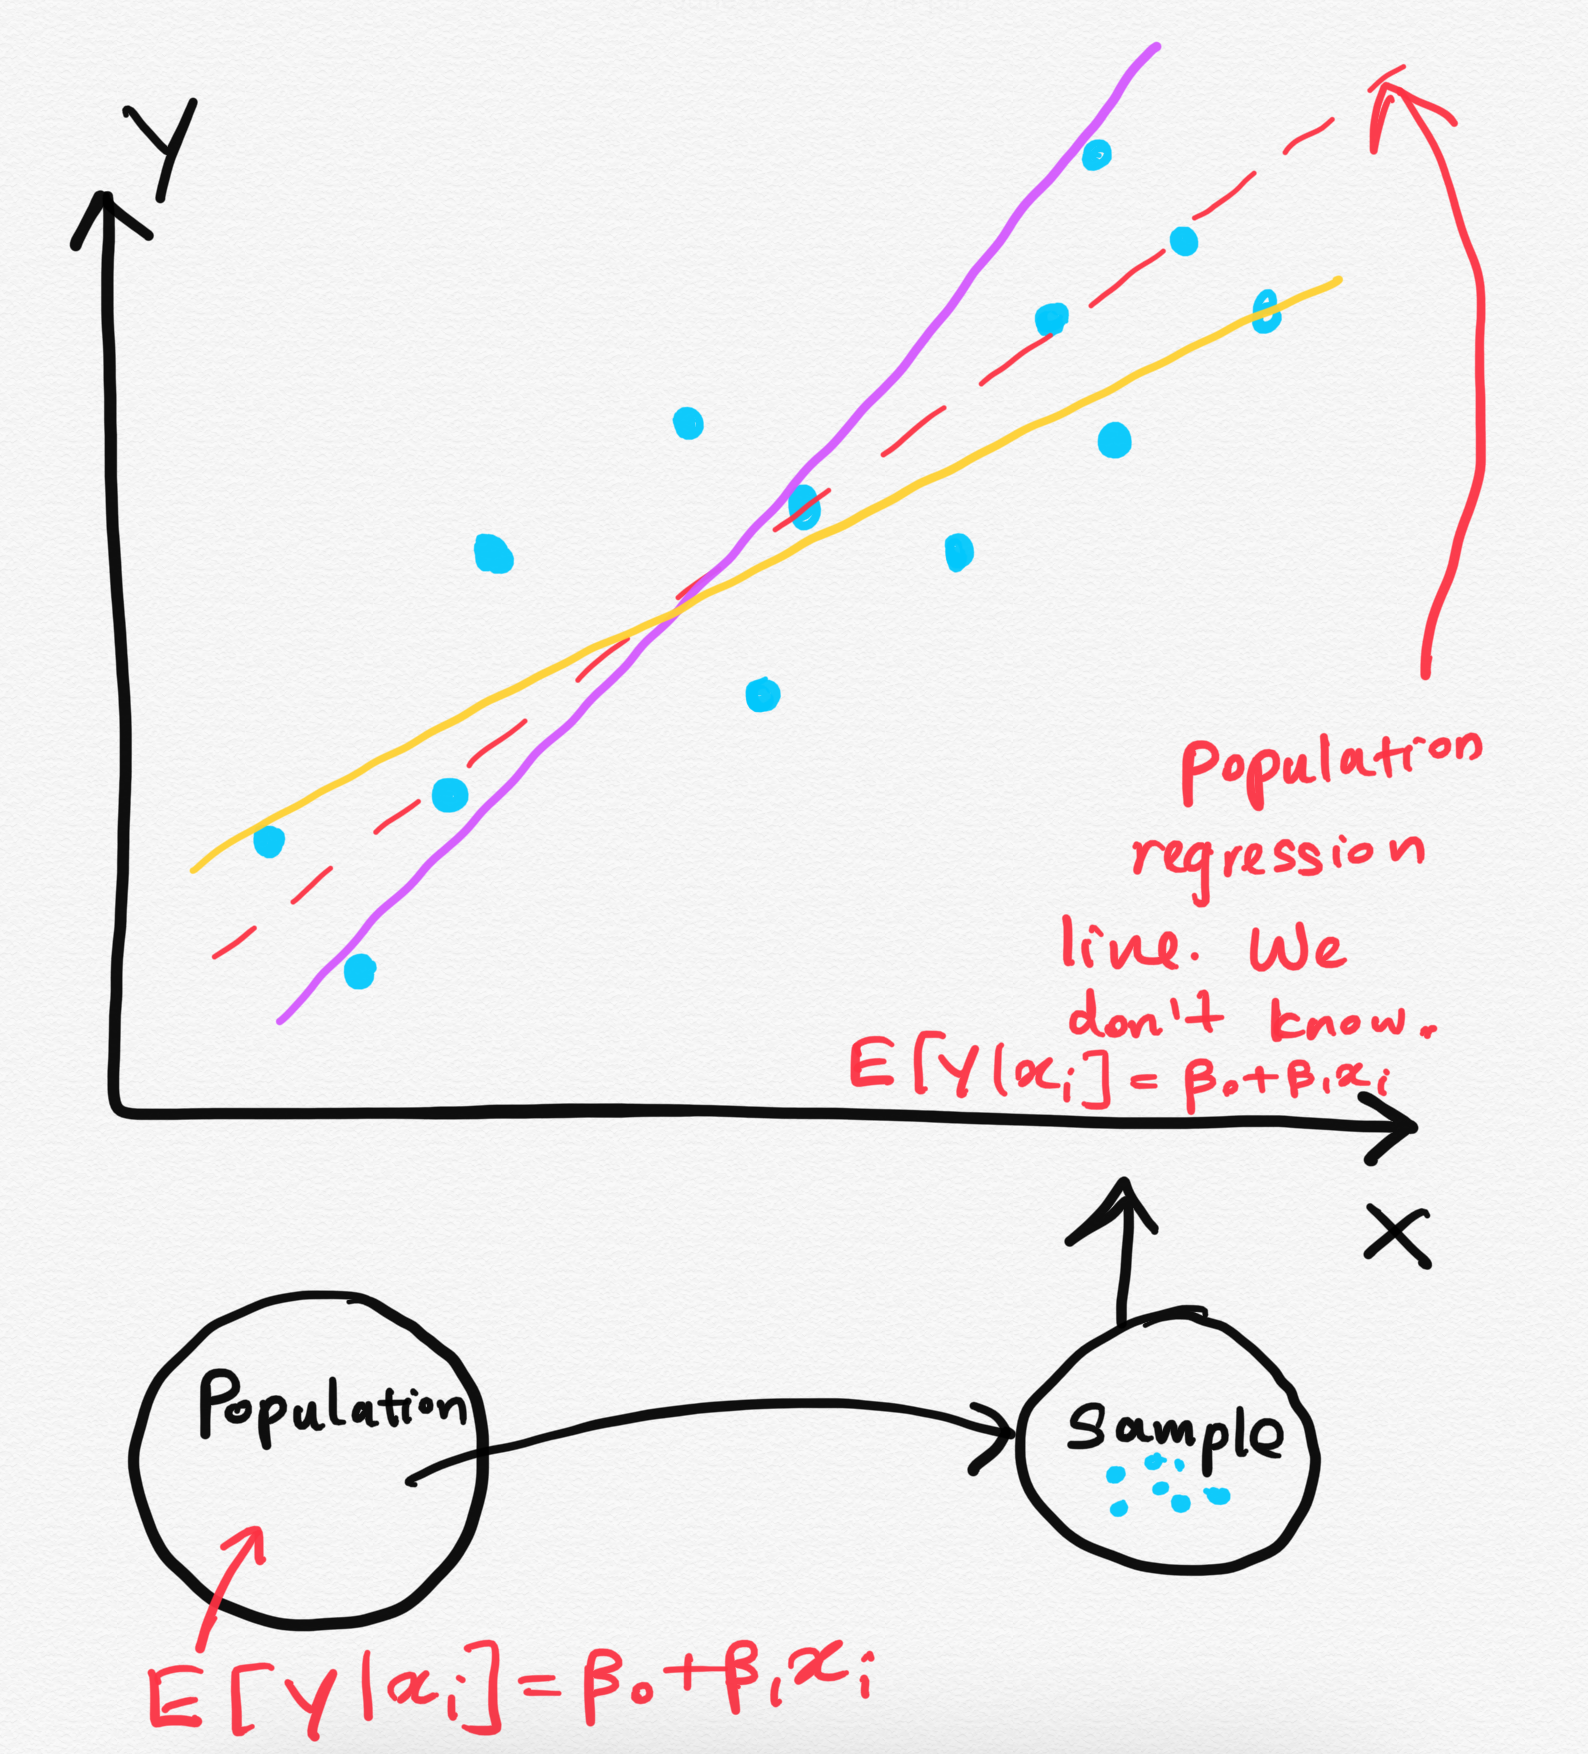 Y
Population
regression
line. We
don't know.
E[Y|xᵢ] = β₀+β₁xᵢ
X
Population
Sample
E[Y|xᵢ]=β₀+β₁xᵢ